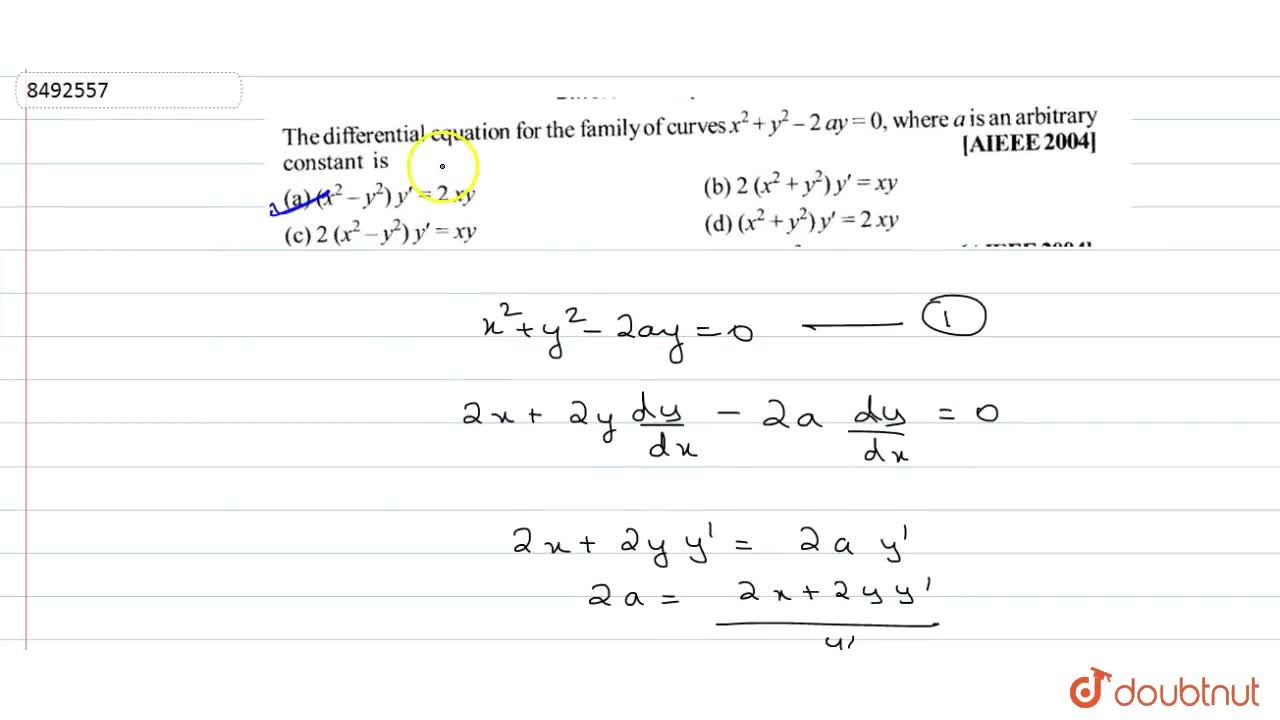 8492557
The differential equation for the family of curves x² + y² – 2 ay = 0, where a is an arbitrary
constant is [AIEEE 2004]
(a) (x² – y²) y′ = 2 xy (b) 2 (x² + y²) y′ = xy
(c) 2 (x² – y²) y′ = xy (d) (x² + y²) y′ = 2 xy
x² + y² – 2ay = 0 —— 1
2x + 2y dy/dx – 2a dy/dx = 0
2x + 2y y' = 2a y'
2a = 2x + 2y y'
y'
doubtnut